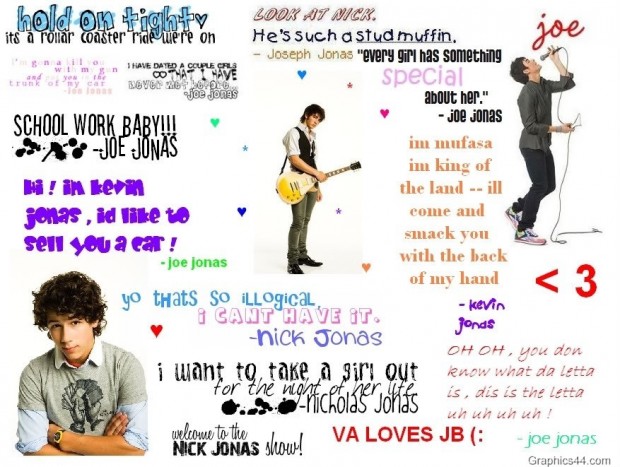 hold on tight♥
its a rollar coaster ride were on
LOOK AT NICK.
He's such a stud muffin.
- Joseph Jonas
joe
"every girl has something
special
about her."
- Joe Jonas
I'm gonna kill you
trunk of my car
-Joe Jonas
I HAVE DATED A COUPLE GIRLS
THAT I HAVE
never met before
-Joe Jonas
SCHOOL WORK BABY!!!
-JOE JONAS
Hi ! im kevin
jonas , id like to
sell you a car !
- joe jonas
im mufasa
im king of
the land -- ill
come and
smack you
with the back
of my hand
- kevin
jonas
< 3
yo thats so illogical,
i CANT HAVE IT.
-Nick Jonas
i want to take a girl out
for the night of her life
-Nicholas Jonas
OH OH , you don
know what da letta
is , dis is the letta
uh uh uh uh !
- joe jonas
welcome to the
NICK JONAS show!
VA LOVES JB (:
Graphics44.com